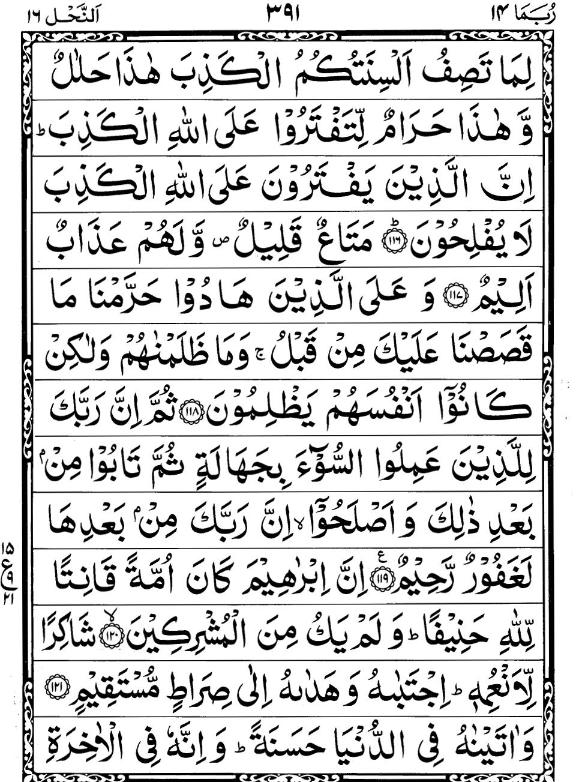 رُبَمَا ۱۴ ۳۹۱ اَلنَّحْل ۱۶
لِمَا تَصِفُ اَلْسِنَتُكُمُ الْكَذِبَ هٰذَا حَلٰلٌ
وَّ هٰذَا حَرَامٌ لِّتَفْتَرُوْا عَلَى اللّٰهِ الْكَذِبَ ؕ
اِنَّ الَّذِيْنَ يَفْتَرُوْنَ عَلَى اللّٰهِ الْكَذِبَ
لَا يُفْلِحُوْنَ ؕ﴿۱۱۶﴾ مَتَاعٌ قَلِيْلٌ ۪ وَّلَهُمْ عَذَابٌ
اَلِيْمٌ ﴿۱۱۷﴾ وَ عَلَى الَّذِيْنَ هَادُوْا حَرَّمْنَا مَا
قَصَصْنَا عَلَيْكَ مِنْ قَبْلُ ۚ وَمَا ظَلَمْنٰهُمْ وَلٰكِنْ
كَانُوْۤا اَنْفُسَهُمْ يَظْلِمُوْنَ ﴿۱۱۸﴾ ثُمَّ اِنَّ رَبَّكَ
لِلَّذِيْنَ عَمِلُوا السُّوْٓءَ بِجَهَالَةٍ ثُمَّ تَابُوْا مِنْۢ
بَعْدِ ذٰلِكَ وَ اَصْلَحُوْۤا ۙ اِنَّ رَبَّكَ مِنْۢ بَعْدِهَا
لَغَفُوْرٌ رَّحِيْمٌ ﴿۱۱۹﴾ع اِنَّ اِبْرٰهِيْمَ كَانَ اُمَّةً قَانِتًا
۱۵
ع
۹
۲۱
لِّلّٰهِ حَنِيْفًا ؕ وَ لَمْ يَكُ مِنَ الْمُشْرِكِيْنَ ۙ﴿۱۲۰﴾ شَاكِرًا
لِّاَنْعُمِهٖ ؕ اِجْتَبٰىهُ وَ هَدٰىهُ اِلٰى صِرَاطٍ مُّسْتَقِيْمٍ ﴿۱۲۱﴾
وَاٰتَيْنٰهُ فِى الدُّنْيَا حَسَنَةً ؕ وَ اِنَّهٗ فِى الْاٰخِرَةِ